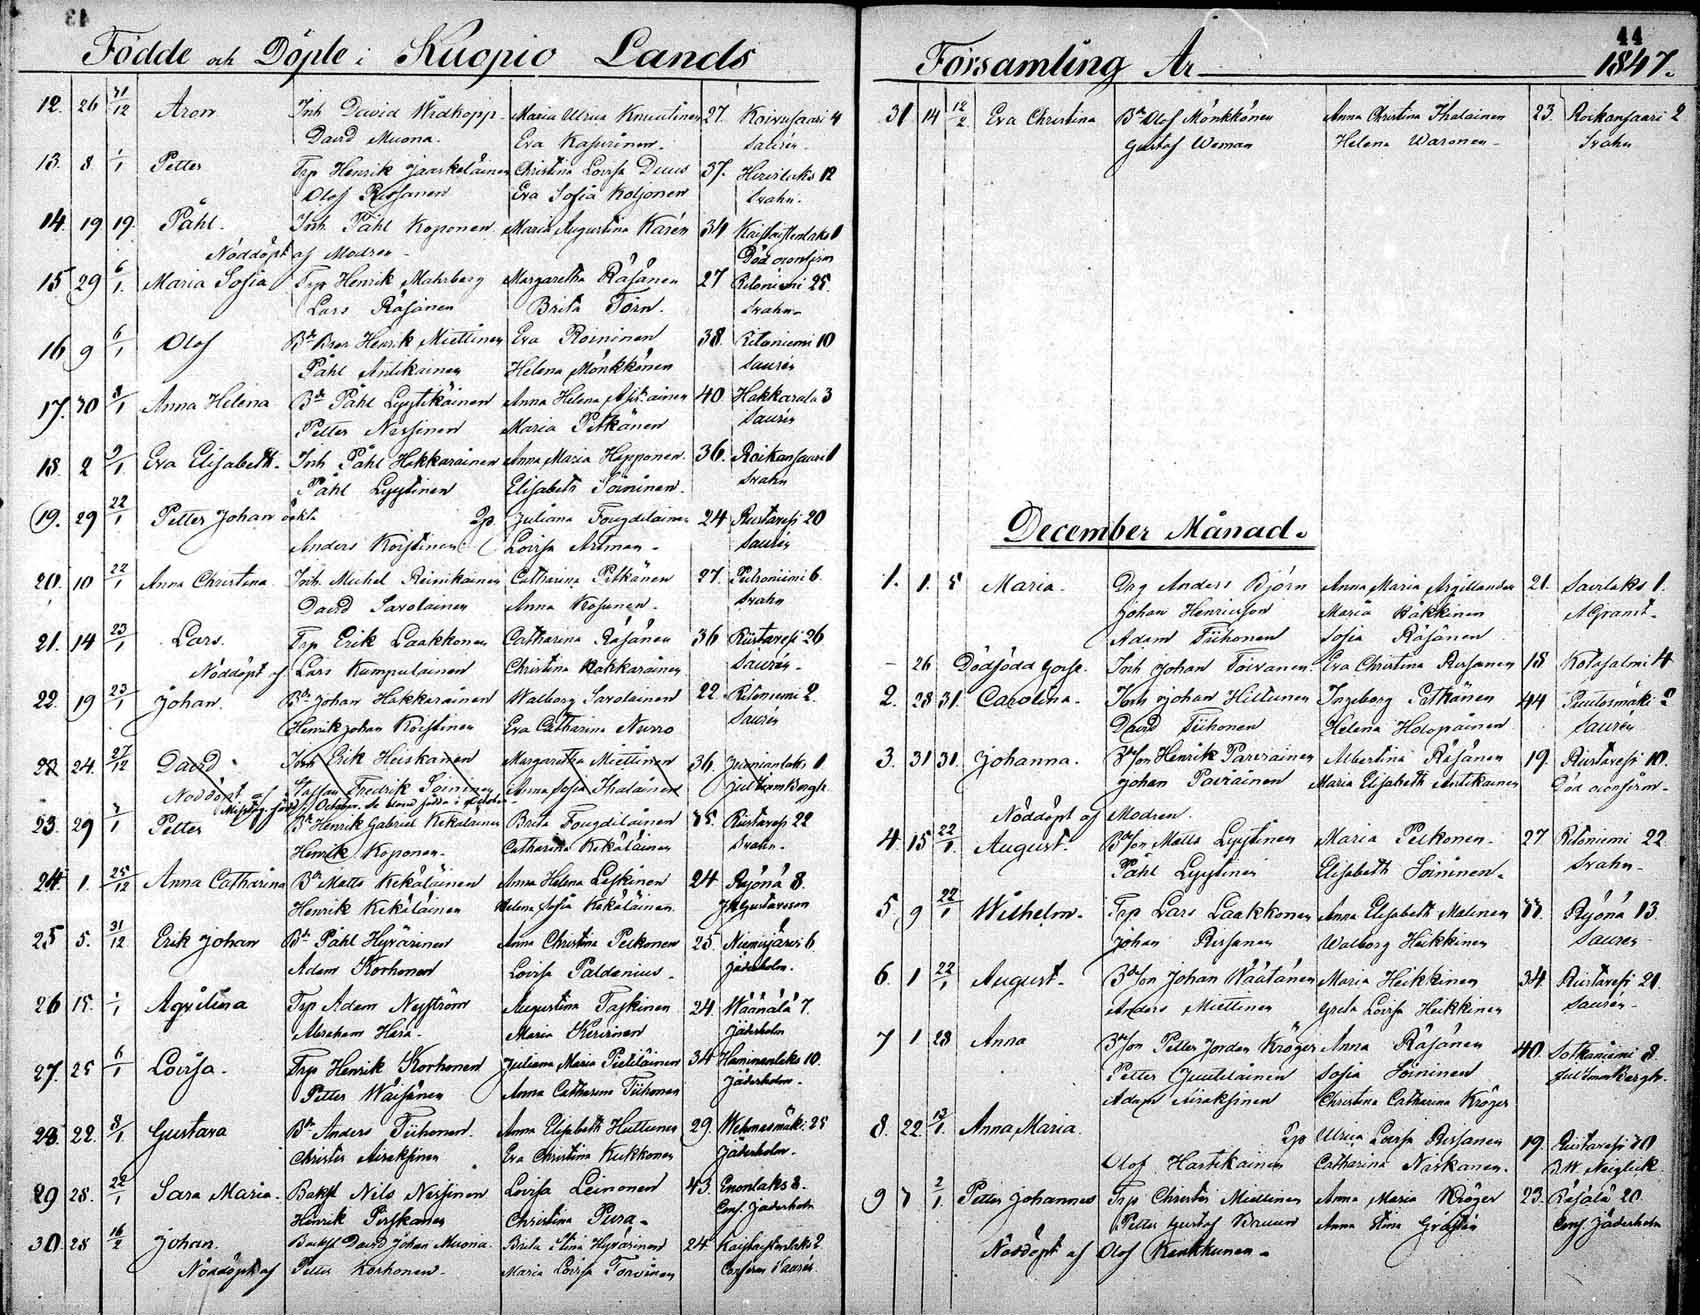 43
Födde och Döpte i Kuopio Lands
12. 26 31/12 Aron Inh David Widkopp Maria Ulrica Knuutinen 27. Koivusaari 4
David Muona. Eva Kasurinen. Saurén
13. 8 1/1 Petter Trp Henrik Jääskeläinen Christina Lovisa Duus 37. Hirvilaks 12
Olof Rissanen Eva Sofia Koljonen Svahn.
14. 19 19. Påhl. Inh Påhl Koponen Maria Augustina Karén 34 1
Nöddöpt af Modren
15 29 6/1 Maria Sofia Trp Henrik Mahrberg Margaretha Räsänen 27 Ritoniemi 25.
Lars Räsänen Brita Törn. Svahn
16 9 6/1 Olof Henrik Miettinen Eva Roininen 38. Ritoniemi 10
Påhl Antikainen Helena Mönkkönen Saurén
17. 30 8/1 Anna Helena Bd Påhl Lyytikäinen Anna Helena 40 Hakkarala 3
Petter Nissinen Maria Pitkänen Saurén
18. 2 9/1 Eva Elisabeth. Inh Påhl Hakkarainen Anna Maria Hipponen 36. Roikansaari 1
Påhl Lyytinen Elisabeth Soininen. Svahn
19. 29 22/1 Petter Johan oekta Qp Juliana Fougdilainen 24 Riistavesi 20
Anders Koistinen Lovisa Artman Saurén
20. 10 22/1 Anna Christina Inh. Michel Reinikainen Catharina Pitkänen 27. 6.
David Savolainen Anna Kosunen. Svahn
21. 14 23/1 Lars. Trp Erik Laakkonen Catharina Räsänen 36 Riistavesi 26
Nöddöpt af Lars Kumpulainen Christina Hakkarainen Saurén
22. 19 23/1 Johan. Bd Johan Hakkarainen Walborg Savolainen 22 Ritoniemi 2.
Henrik Johan Koistinen Eva Catharina Nurro Saurén
24. 27/12 David Inh Erik Heiskanen Margaretha Miettinen 36. 1
Nöddöpt af Staffan Fredrik Soininen Anna Sofia Ihalainen Jul Imm Bergh.
23. 29 1 Petter Bd Henrik Gabriel Kekäläinen Brita Fougdilainen 35. Riistavesi 22
Henrik Koponen. Catharina Kekäläinen Svahn.
24. 1. 25/12 Anna Catharina Bd Matts Kekäläinen Anna Helena Leskinen 24 Ryönä 8.
Henrik Kekäläinen Helena Sofia Kekäläinen Gustavsson
25 5. 31/12 Erik Johan Bd Påhl Hyvärinen Anna Christina Pelkonen 25. Niemisjärvi 6
Adam Korhonen Lovisa Paldanius. Jäderholm.
26 15. 1/1 Aqvilina Trp Adam Nyström Augustina Taskinen 24 Wäänälä 7.
Abraham Hära. Maria Kervinen Jäderholm
27. 25 6/1 Lovisa. Trp Henrik Korhonen Juliana Maria Pietiläinen 34 Haminanlaks 10.
Petter Wäisänen Anna Catharina Tiihonen Jäderholm.
28. 22. 8/1 Gustava Bd Anders Tiihonen. Anna Elisabeth Huttunen 29. Wehmasmäki 25
Christer Airaksinen Eva Christina Kukkonen Jäderholm.
29 28. 22/1 Sara Maria. Nils Nissinen Lovisa Leinonen 43. Enonlaks 2.
Henrik Christina Pura. Conf. Jäderholm
30. 28 16/2 Johan. David Johan Muona. Brita Stina Hyvärinen 24. 2
Nöddöpt af Petter Korhonen. Maria Lovisa Toivinen Saurén
44
Församling År 1847.
31 14 12/2 Eva Christina Bd Olof Mönkkönen Anna Christina Ihalainen 23. Roikansaari 2
Gustaf Weman Helena Waronen Svahn
December Månad.
1. 1. 5 Maria. Drg Anders Björn Anna Maria Argillander 21. Savilaks 1.
Johan Henricsson Maria Häkkinen A Granit.
Adam Tiihonen Sofia Räsänen
– 26 Dödfödd gosse. Inh Johan Toivanen Eva Christina Rissanen 18 Kotasalmi 4
2. 28 31. Carolina. Inh Johan Hiltunen Ingeborg Pitkänen 44 Puutosmäki 2
David Tiihonen Helena Holopainen Saurén
3. 31 31. Johanna. Bdson Henrik Parviainen Albertina Räsänen 19. Riistavesi 10.
Johan Maria Elisabeth Antikainen
Nöddöpt af Modren.
4. 15 22/1. August. Bdson Matts Lyytinen Maria Pelkonen. 27 Ritoniemi 22
Påhl Lyytinen Elisabeth Soininen. Svahn
5 9 22/1 Wilhelm. Trp Lars Laakkonen Anna Elisabeth Malinen 33. Ryönä 13.
Johan Rissanen Walborg Heikkinen Saurén
6. 1 22/1 August. Bdson Johan Wäätänen Maria Heikkinen 34. Riistavesi 21.
Anders Miettinen Greta Lovisa Heikkinen Saurén
7 1 28 Anna Bdson Petter Jordan Kröger Anna Räsänen 40. Sotkaniemi 8.
Petter Juutilainen Sofia Soininen Jul Imm Bergh.
Adam Airaksinen Christina Catharina Kröger
8. 22. 13/1. Anna Maria Qp Ulrica Lovisa Rissanen 19. Riistavesi 30
Olof Hartikainen Catharina Niskanen. Neiglick
9 3 2/1. Petter Johannes Trp Christer Miettinen Anna Maria Kröger 23. Räsälä 20.
Petter Gustaf Bruun Anna Stina Gråsten Conf. Jäderholm
Nöddöpt af Olof Kinkkunen.